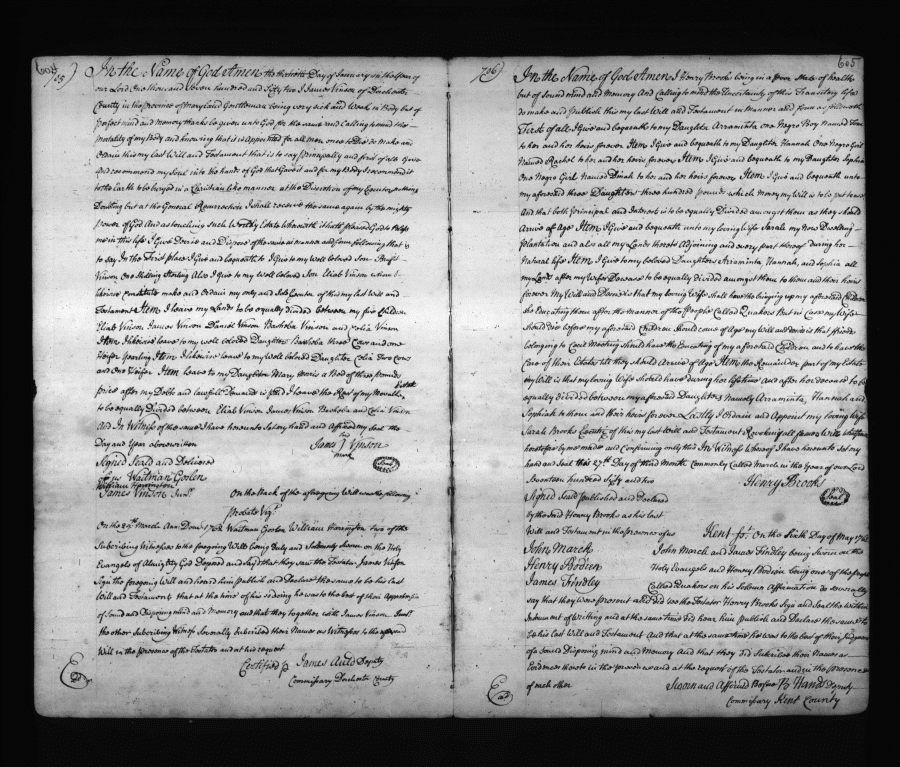 604
705)
In the Name of God Amen the thirtieth Day of January in the Year of
our Lord One thousand and Seven hundred and Fifty two I James Vinson of Dorchester
County in the Province of Maryland Gentleman being very sick and Weak in Body but of
perfect mind and memory thanks be given unto God for the same and Calling to mind the
Mortality of my Body and knowing that it is Appointed for all men once to Die do make and
Ordain this my Last Will and Testament that is to say principally and first of all I Give
and recommend my Soul into the hands of God that Gave it and for my Body I recommend it
to the Earth to be buryed in a Christian like manner at the Discretion of my Executor nothing
Doubting but at the General Resurrection I shall receive the same again by the mighty
power of God And as touching such Worldly Estate wherewith it hath pleased God to bless
me in this life I Give Devise and Dispose of the same in manner and form following that is
to say In the First place I Give and bequeath to I Give to my well beloved Son
Vinson One Shilling Sterling Also I Give to my well beloved Son Eliab Vinson whom I
likewise Constitute make and Ordain my only and Sole Executor of this my last Will and
Testament Item I leave my Lands to be equally divided between my five Children
Eliab Vinson James Vinson Daniel Vinson Barsheba Vinson and Celia Vinson
Item I likewise leave to my well beloved Daughter Barsheba three Cows and one
Heifer Yearling Item I likewise leave to my well beloved Daughter Celia Two Cows
and One Heifer Item I leave to my Daughter Mary Morris a Bed of three pounds
price after my Debts and lawfull Demands is paid I leave the Rest of my Moveable
Estate
to be equally Divided between Eliab Vinson James Vinson Barsheba and Celia Vinson
And In Witness of the same I have hereunto Set my hand and Affixed my Seal the
Day and Year above written
James Vinson
his
mark
Seal
Signed Seald and Delivered
Waitman Goslen
William Horrington
James Vinson Junr.
On the Back of the aforegoing Will was the following
Probate Vizt.
On the 29th March Ann: Dom: 1752 Waitman Goslen William Horrington two of the
Subscribing Witnesses to the foregoing Will being Duly and Solemnly Sworn on the Holy
Evangels of Almighty God Deposed and Say that they saw the Testator James Vinson
Sign the foregoing Will and heard him publish and Declare the same to be his last
Will and Testament that at the time of his so doing he was to the best of their Apprehension
of Sound and Disposing mind and Memory and that they together with James Vinson Junr.
the other Subscribing Witness Severally Subscribed their Names as Witnesses to the aforesaid
Will in the presence of the Testator and at his request
Certified p James Auld Deputy
Commissary Dorchester County
605
706)
In the Name of God Amen I Henry Brooks being in a poor State of health
but of Sound mind and Memory And Calling to mind the Uncertainty of this Transitory life
do make and Publish this my last Will and Testament in manner and form as followeth
First of all I Give and bequeath to my Daughter Arraminta One Negro Boy Named
to her and her heirs forever Item I Give and bequeath to my Daughter Hannah One Negro Girl
Named Rachel to her and her heirs forever Item I Give and bequeath to my Daughter Sophia
One Negro Girl Named Dinah to her and her heirs forever Item I Give and bequeath unto
my aforesaid three Daughters three hundred pounds which Money my Will is to be put to use
And that both Principal and Interest is to be equally Divided amongst them as they should
Arrive of Age Item I Give and bequeath unto my loving Wife Sarah my Now Dwelling
plantation and also all my Lands thereto Adjoining and every part thereof during her
Natural life Item I Give to my beloved Daughters Arraminta, Hannah, and Sophia all
my Lands after my Wifes Decease to be equally divided amongst them to them and their heirs
forever My Will and Desire is that my loving Wife shall have the bringing up my aforesaid Children
she Educating them after the manner of the People Called Quakers But in Case my Wife
should Die before my aforesaid Children should come of Age my Will and desire is that friends
belonging to Cecil Meeting should have the Educating of my aforesaid Children and to have the
Care of their Estates till they should Arrive of Age Item the Remainder part of my Estate
my Will is that my loving Wife should have during her life time and after her decease to be
equally divided between my aforesaid Daughters Namely Arraminta, Hannah and
Sophia to them and their heirs forever Lastly I Ordain and Appoint my loving Wife
Sarah Brooks Executrix of this my last Will and Testament Revoking all former Wills whatsoever
heretofore by me made and Confirming only this In Witness whereof I have hereunto set my
hand and Seal this 27th Day of third Month Commonly Called March in the Year of our Lord
Seventeen hundred fifty and two
Henry Brooks
Seal
Signed Seald published and Declared
by the said Henry Brooks as his last
Will and Testament in the presence of us
John March
Henry Bodien
James Findley
Kent Ss. On the Sixth Day of May 1752
John March and James Findley being Sworn on the
Holy Evangels and Henry Bodien being one of the people
Called Quakers on his Solemn Affirmation do severally
say that they were present and did see the Testator Henry Brooks Sign and Seal the within
Instrument of Writing and at the same time did hear him publish and Declare the same to
be his last Will and Testament And that at the same time he was to the best of their Judgment
of a sound Disposing mind and Memory and that they did Subscribe their Names as
Evidences thereto in the presence and at the request of the Testator and in the presence
of each other
Sworn and Affirmed Before B Hands Deputy
Commissary Kent County